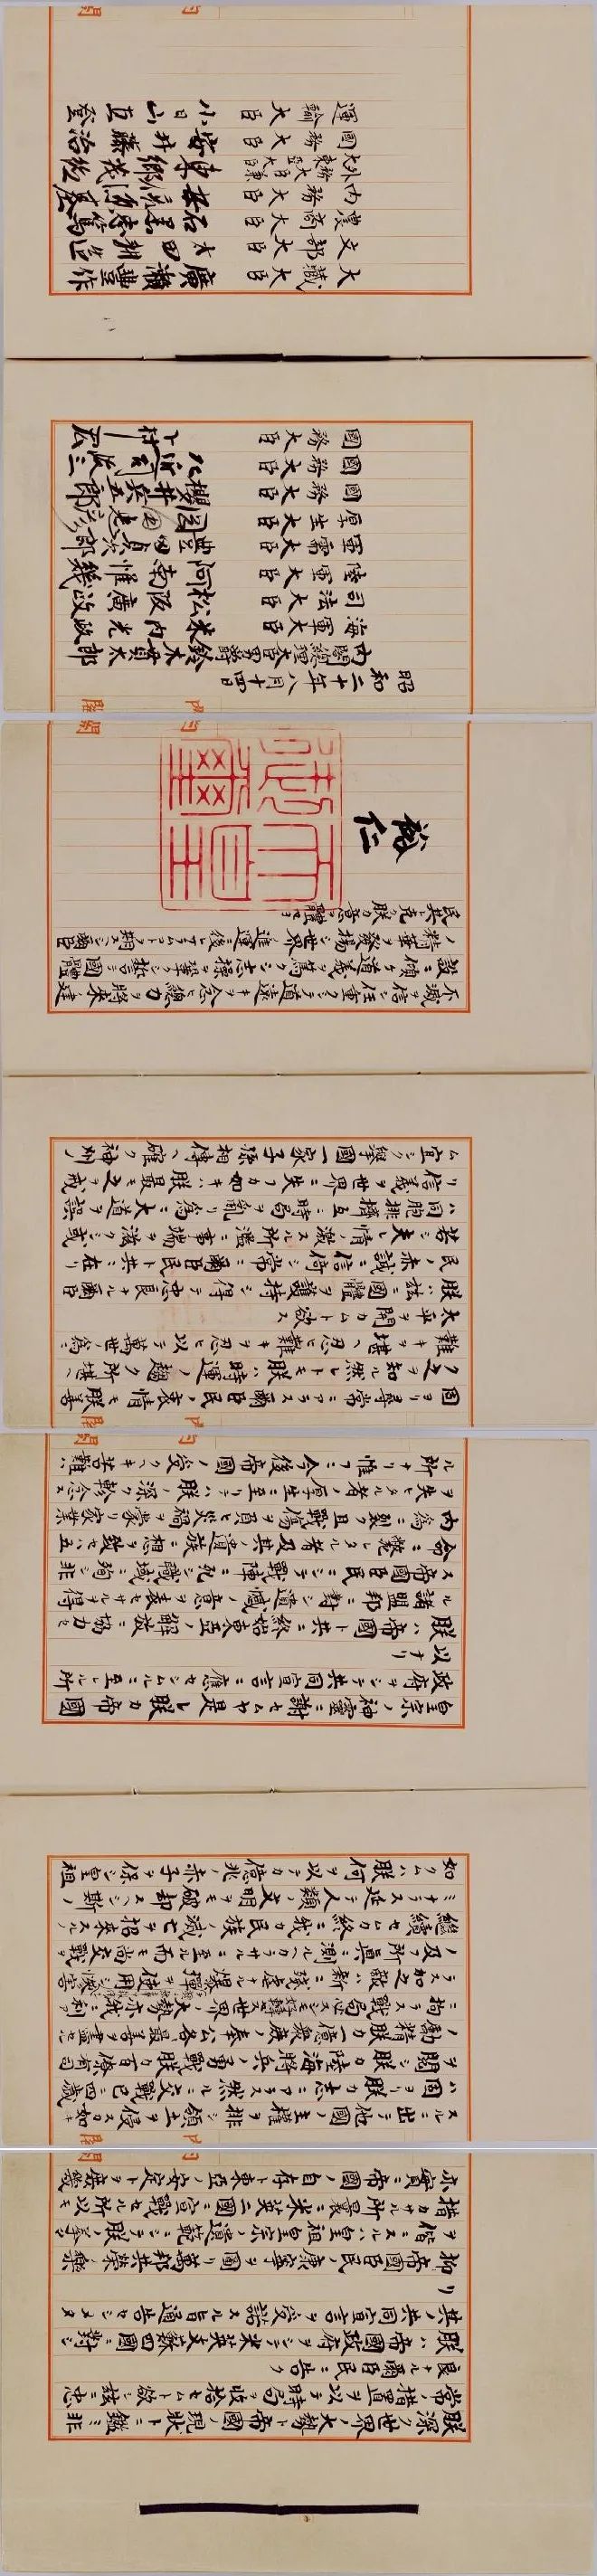 朕深ク世界ノ大勢ト帝國ノ現狀トニ鑑ミ非
常ノ措置ヲ以テ時局ヲ收拾セムト欲シ茲ニ忠
良ナル爾臣民ニ告ク
朕ハ帝國政府ヲシテ米英支蘇四國ニ對シ
其ノ共同宣言ヲ受諾スル旨通告セシメタ
リ
抑帝國臣民ノ康寧ヲ圖リ萬邦共榮ノ樂
ヲ偕ニスルハ皇祖皇宗ノ遺範ニシテ朕ノ拳々
措カサル所曩ニ米英二國ニ宣戰セル所以モ
亦實ニ帝國ノ自存ト東亞ノ安定トヲ庶幾
スルニ出テ他國ノ主權ヲ排シ領土ヲ侵スカ如キ
ハ固ヨリ朕カ志ニアラス然ルニ交戰已ニ四歲
ヲ閱シ朕カ陸海將兵ノ勇戰朕カ百僚有司
ノ勵精朕カ一億衆庶ノ奉公各最善ヲ盡セル
ニ拘ラス戰局必スシモ好轉セス世界ノ大勢亦我ニ利ア
ラス加之敵ハ新ニ殘虐ナル爆彈ヲ使用シテ慘害
ノ及フ所眞ニ測ルヘカラサルニ至ル而モ尚交戰ヲ
繼續セムカ終ニ我カ民族ノ滅亡ヲ招來スルノ
ミナラス延テ人類ノ文明ヲモ破却スヘシ斯ノ
如クムハ朕何ヲ以テカ億兆ノ赤子ヲ保シ皇祖
皇宗ノ神靈ニ謝セムヤ是レ朕カ帝國
政府ヲシテ共同宣言ニ應セシムルニ至レル所
以ナリ
朕ハ帝國ト共ニ終始東亞ノ解放ニ協力セ
ル諸盟邦ニ對シ遺憾ノ意ヲ表セサルヲ得
ス帝國臣民ニシテ戰陣ニ死シ職域ニ殉シ非
命ニ斃レタル者及其ノ遺族ニ想ヲ致セハ五
內爲ニ裂ク且戰傷ヲ負ヒ災禍ヲ蒙リ家業
ヲ失ヒタル者ノ厚生ニ至リテハ朕ノ深ク軫念ス
ル所ナリ惟フニ今後帝國ノ受クヘキ苦難ハ
固ヨリ尋常ニアラス爾臣民ノ衷情モ朕善
ク之ヲ知ル然レトモ朕ハ時運ノ趨ク所堪ヘ
難キヲ堪ヘ忍ヒ難キヲ忍ヒ以テ萬世ノ爲ニ
太平ヲ開カムト欲ス
朕ハ茲ニ國體ヲ護持シ得テ忠良ナル爾臣
民ノ赤誠ニ信倚シ常ニ爾臣民ト共ニ在リ
若シ夫レ情ノ激スル所濫ニ事端ヲ滋クシ或
ハ同胞排擠互ニ時局ヲ亂リ爲ニ大道ヲ誤
リ信義ヲ世界ニ失フカ如キハ朕最モ之ヲ戒
ム宜シク擧國一家子孫相傳ヘ確ク神州ノ
不滅ヲ信シ任重クシテ道遠キヲ念ヒ總力ヲ將來ノ建
設ニ傾ケ道義ヲ篤クシ志操ヲ鞏クシ誓テ國體
ノ精華ヲ發揚シ世界ノ進運ニ後レサラムコトヲ期スヘシ爾臣
民其レ克ク朕カ意ヲ體セヨ
裕仁
天皇御璽
昭和二十年八月十四日
內閣總理大臣男爵 鈴木貫太郎
海軍大臣 米內光政
司法大臣 松阪廣政
陸軍大臣 阿南惟幾
軍需大臣 豐田貞次郎
厚生大臣 岡田忠彥
國務大臣 櫻井兵五郎
國務大臣 左近司政三
國務大臣 下村宏
大藏大臣 廣瀨豐作
文部大臣 太田耕造
農商大臣 石黑忠篤
內務大臣 安倍源基
外務大臣兼大東亞大臣 東鄕茂德
國務大臣 安井藤治
運輸大臣 小日山直登
內閣